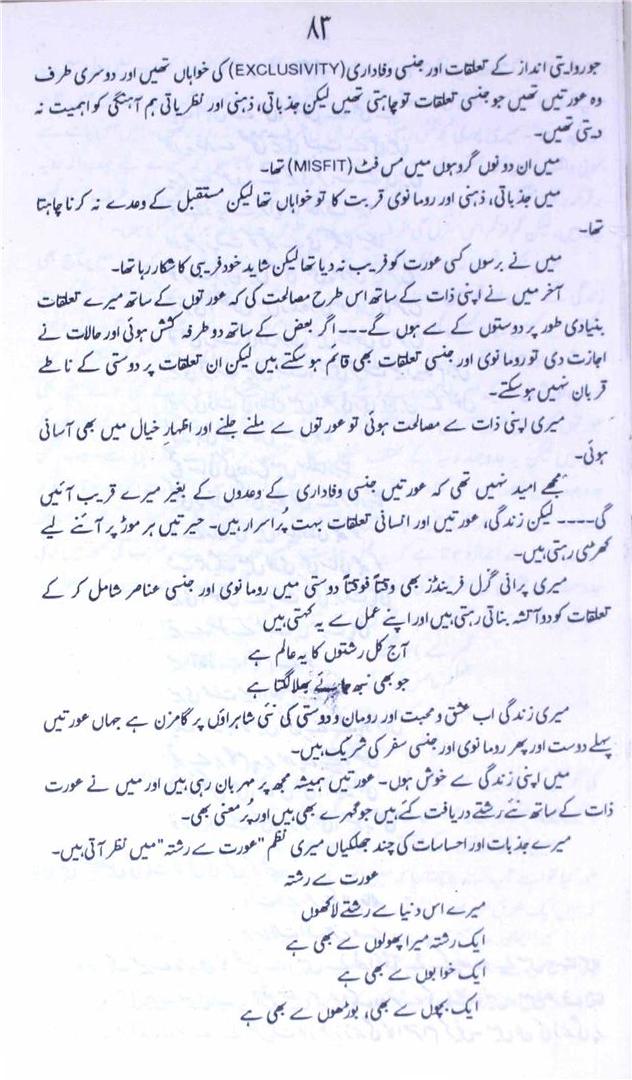 ۸۳
جو روایتی انداز کے تعلقات اور جنسی وفاداری (EXCLUSIVITY) کی خواہاں تھیں اور دوسری طرف
وہ عورتیں تھیں جو جنسی تعلقات تو چاہتی تھیں لیکن جذباتی، ذہنی اور نظریاتی ہم آہنگی کو اہمیت نہ
دیتی تھیں۔
میں ان دونوں گروہوں میں مس فٹ (MISFIT) تھا۔
میں جذباتی، ذہنی اور رومانوی قربت کا تو خواہاں تھا لیکن مستقبل کے وعدے نہ کرنا چاہتا
تھا۔
میں نے برسوں کسی عورت کو فریب نہ دیا تھا لیکن شاید خود فریبی کا شکار رہا تھا۔
آخر میں نے اپنی ذات کے ساتھ اس طرح مصالحت کی کہ عورتوں کے ساتھ میرے تعلقات
بنیادی طور پر دوستوں کے سے ہوں گے۔۔۔ اگر بعض کے ساتھ دو طرفہ کشش ہوئی اور حالات نے
اجازت دی تو رومانوی اور جنسی تعلقات بھی قائم ہو سکتے ہیں لیکن ان تعلقات پر دوستی کے ناطے
قربان نہیں ہو سکتے۔
میری اپنی ذات سے مصالحت ہوئی تو عورتوں سے ملنے جلنے اور اظہارِ خیال میں بھی آسانی
ہوئی۔
مجھے امید نہیں تھی کہ عورتیں جنسی وفاداری کے وعدوں کے بغیر میرے قریب آئیں
گی۔۔۔۔ لیکن زندگی، عورتیں اور انسانی تعلقات بہت پُراسرار ہیں۔ حیرتیں ہر موڑ پر آئنے لیے
کھڑی رہتی ہیں۔
میری پرانی گرل فرینڈز بھی وقتاً فوقتاً دوستی میں رومانوی اور جنسی عناصر شامل کر کے
تعلقات کو دو آتشہ بناتی رہتی ہیں اور اپنے عمل سے یہ کہتی ہیں
آج کل رشتوں کا یہ عالم ہے
جو بھی نبھ جائے بھلا لگتا ہے
میری زندگی اب عشق و محبت اور رومان و دوستی کی نئی شاہراؤں پر گامزن ہے جہاں عورتیں
پہلے دوست اور پھر رومانوی اور جنسی سفر کی شریک ہیں۔
میں اپنی زندگی سے خوش ہوں۔ عورتیں ہمیشہ مجھ پر مہربان رہی ہیں اور میں نے عورت
ذات کے ساتھ نئے رشتے دریافت کئے ہیں جو گہرے بھی ہیں اور پُر معنی بھی۔
میرے جذبات اور احساسات کی چند جھلکیاں میری نظم "عورت سے رشتہ" میں نظر آتی ہیں۔
عورت سے رشتہ
میرے اس دنیا سے رشتے لاکھوں
ایک رشتہ میرا پھولوں سے بھی ہے
ایک خوابوں سے بھی ہے
ایک بچوں سے بھی، بوڑھوں سے بھی ہے